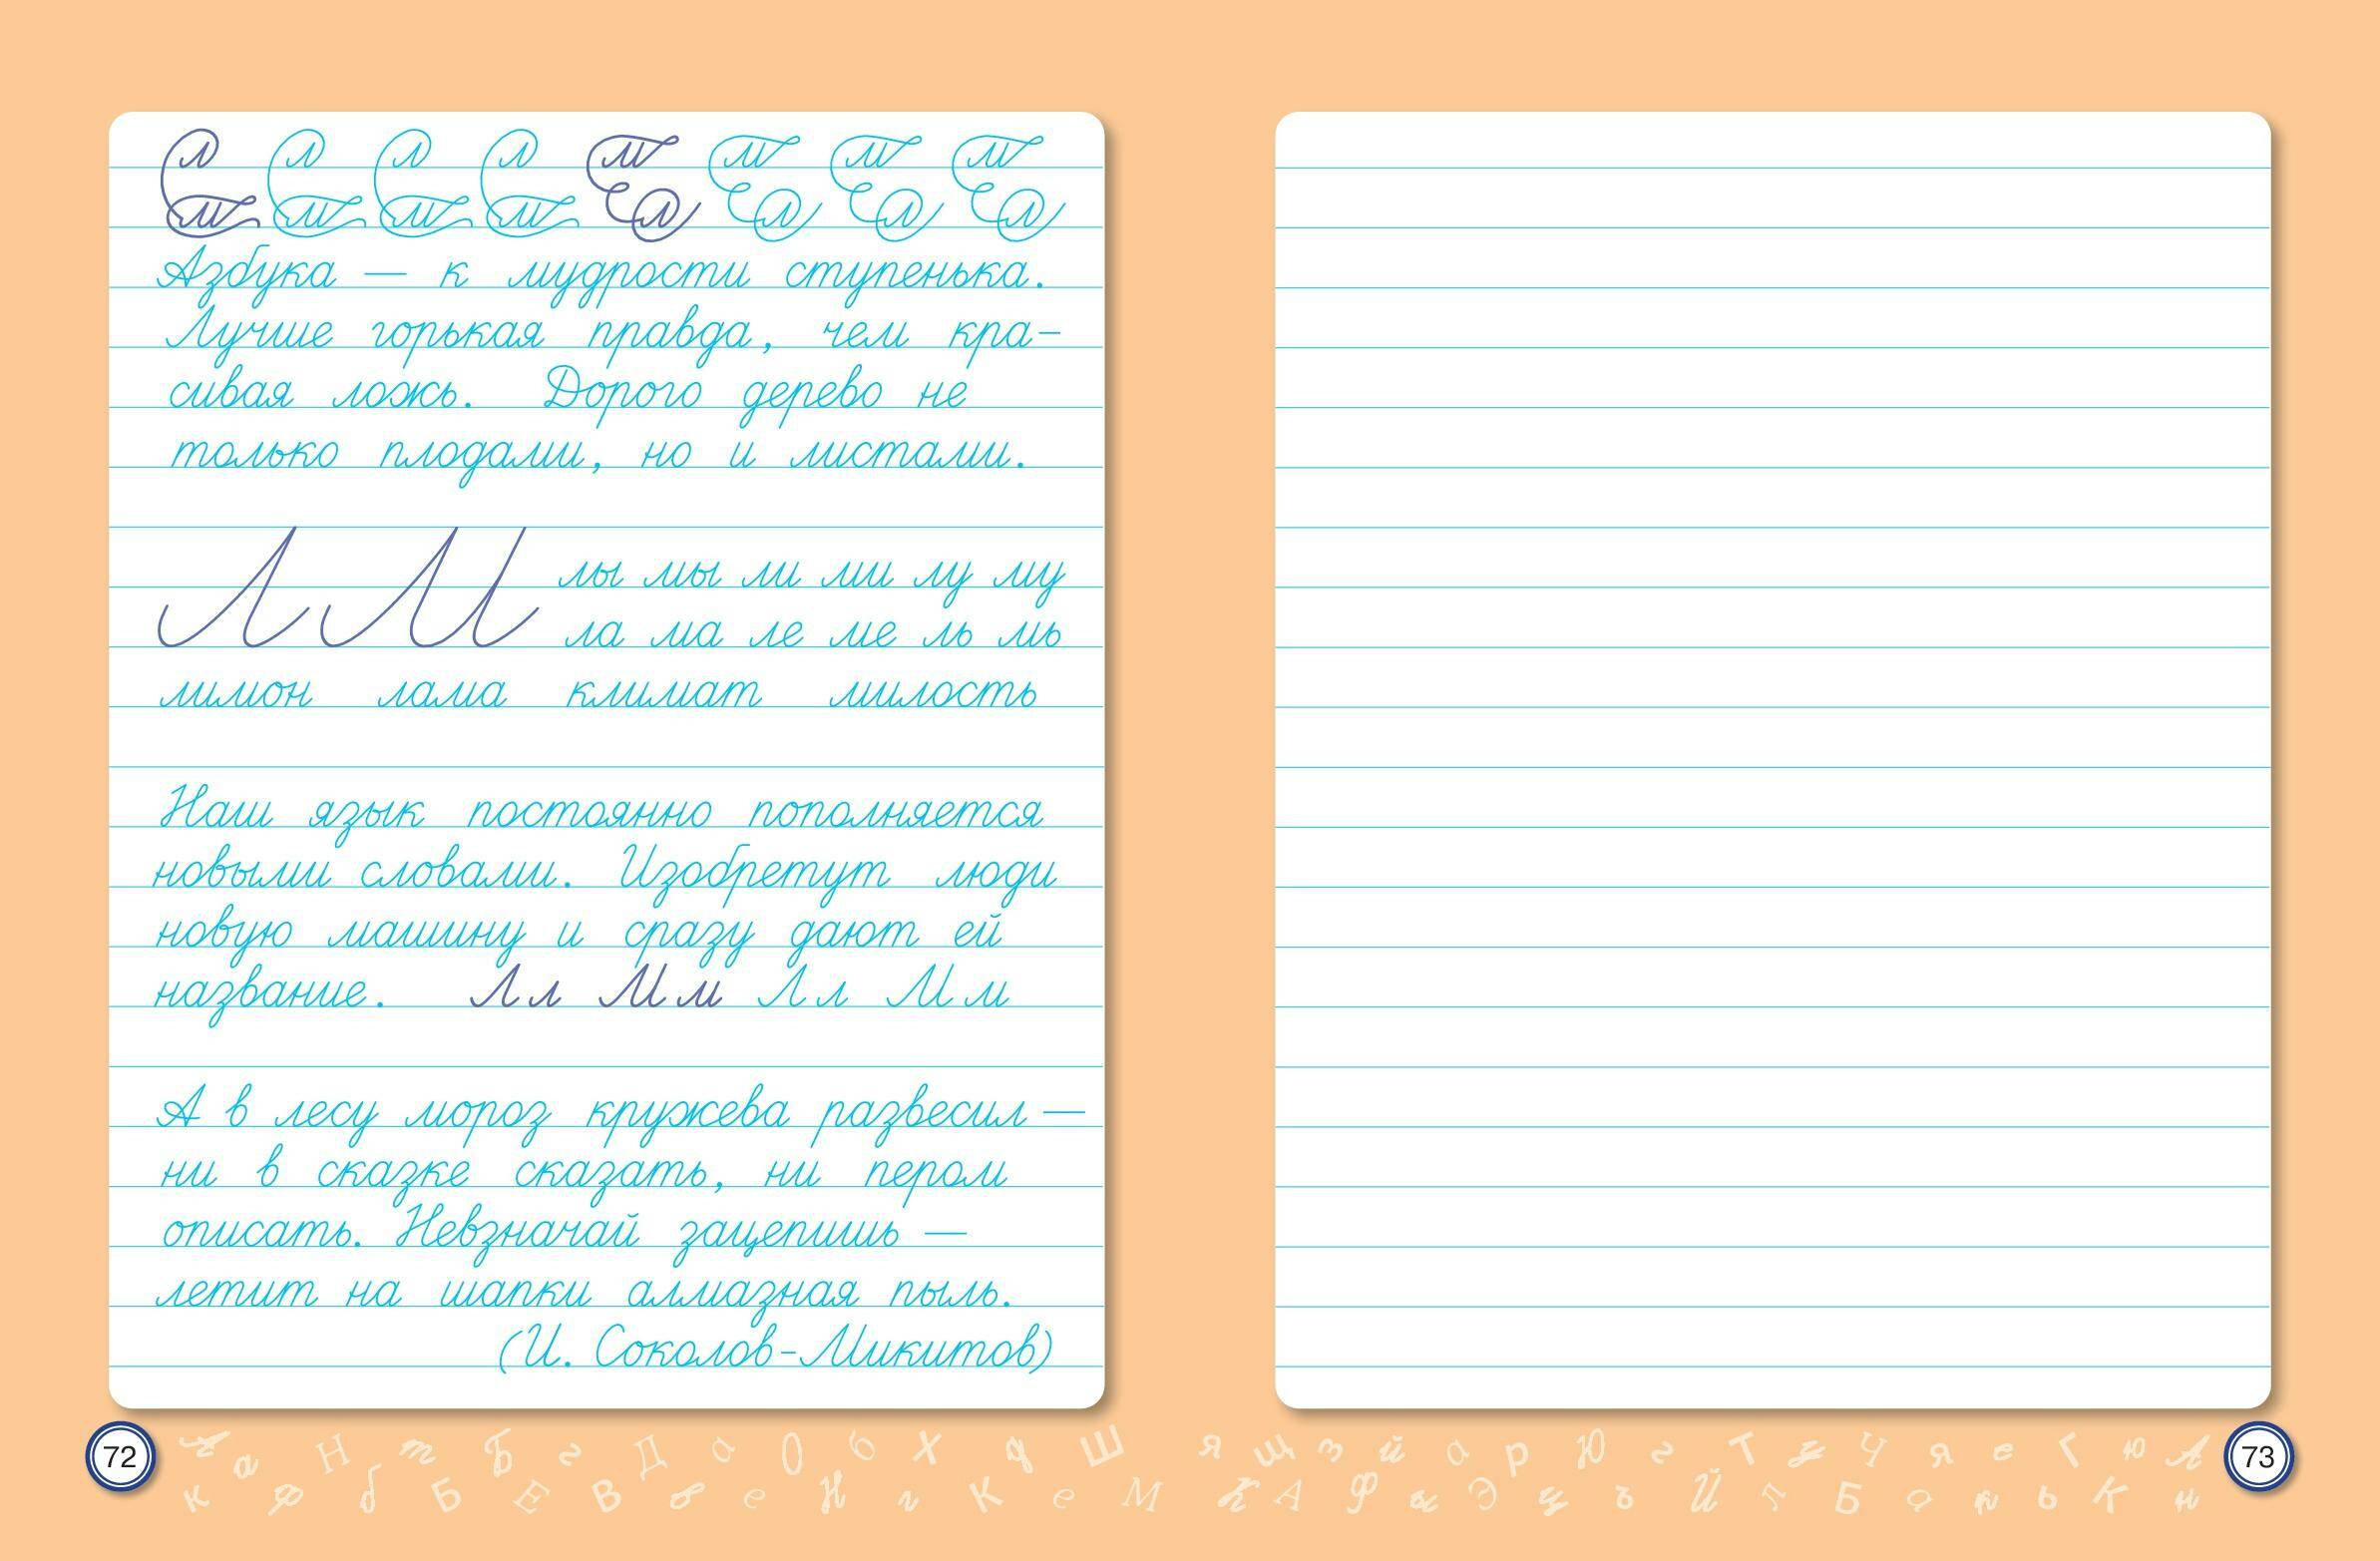 Азбука — к мудрости ступенька.
Лучше горькая правда, чем кра-
сивая ложь. Дорого дерево не
только плодами, но и листами.
Л М
лы мы ли ми лу му
ла ма ле ме ль мь
лимон лама климат милость
Наш язык постоянно пополняется
новыми словами. Изобретут люди
новую машину и сразу дают ей
название. Лл Мм Лл Мм
А в лесу мороз кружева развесил —
ни в сказке сказать, ни пером
описать. Невзначай зацепишь —
летит на шапки алмазная пыль.
(И. Соколов-Микитов)
72
73